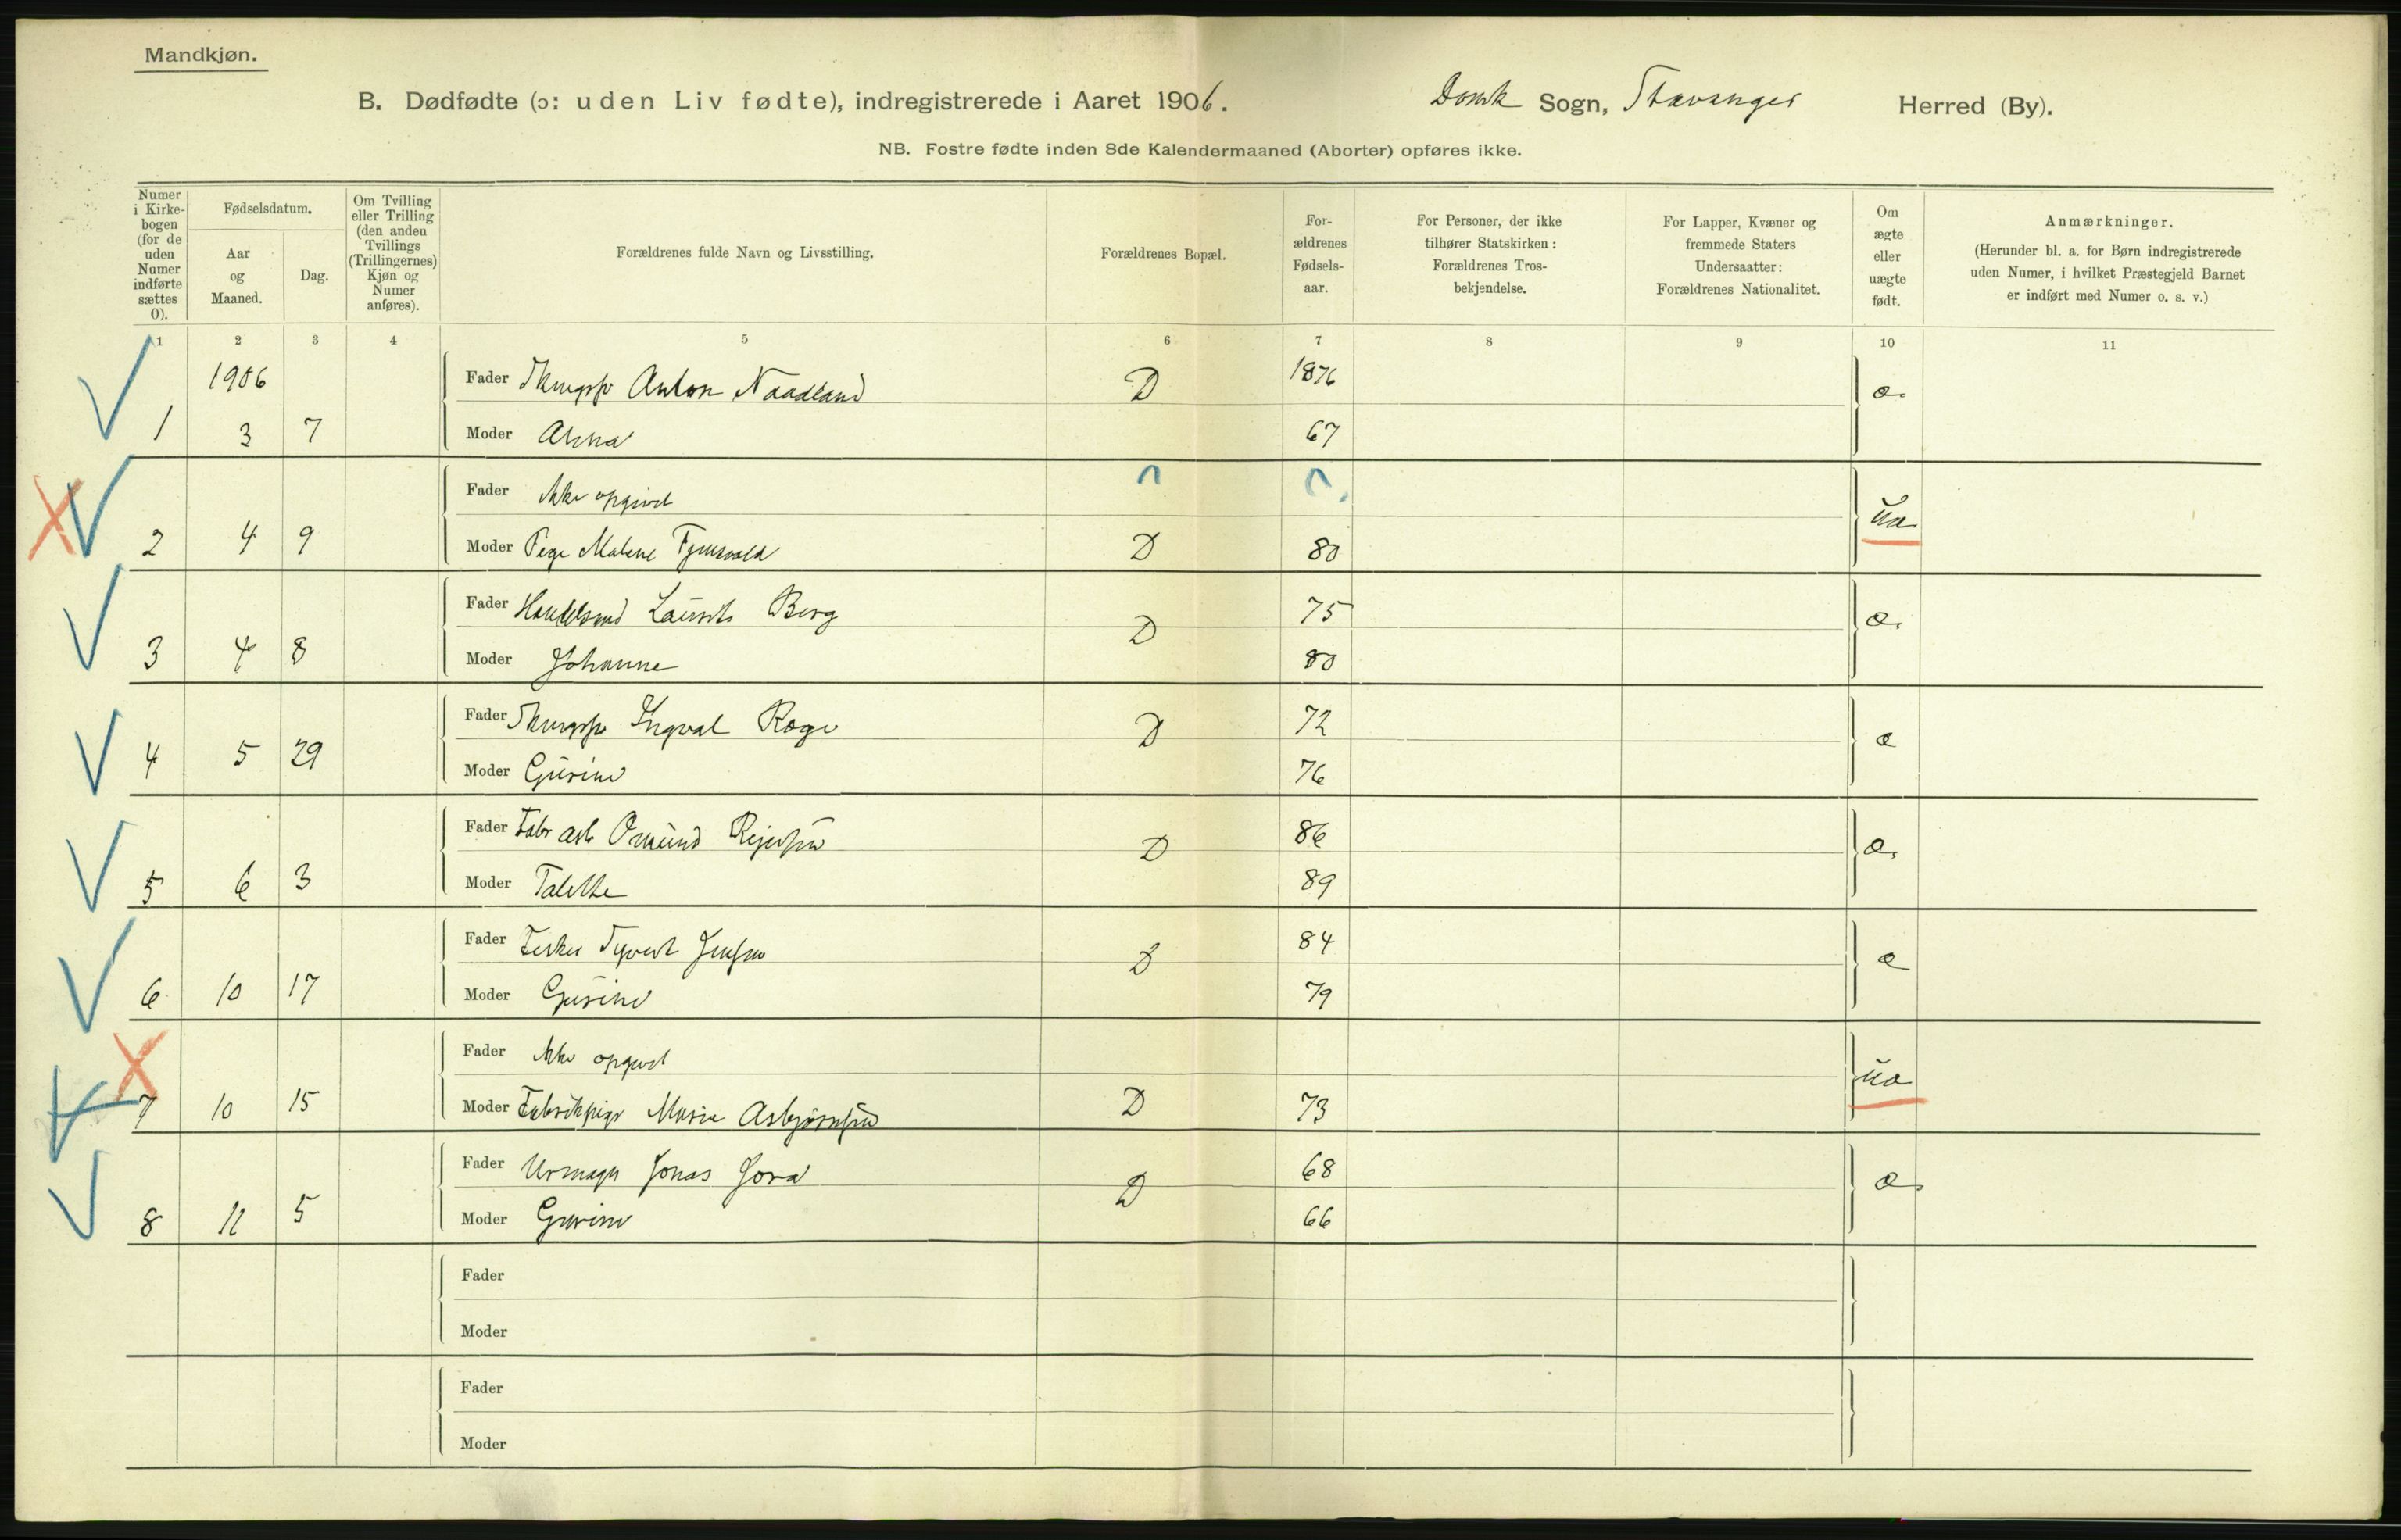 Mandkjøn.
B. Dødfødte (ɔ: uden Liv fødte), indregistrerede i Aaret 1906. Domk Sogn, Stavanger Herred (By).
NB. Fostre fødte inden 8de Kalendermaaned (Aborter) opføres ikke.
Numer i Kirke-bogen (for de uden Numer indførte sættes 0).
Fødselsdatum.
Aar og Maaned.
Dag.
Om Tvilling eller Trilling (den anden Tvillings (Trillingernes) Kjøn og Numer anføres).
Forældrenes fulde Navn og Livsstilling.
Forældrenes Bopæl.
For-ældrenes Fødsels-aar.
For Personer, der ikke tilhører Statskirken: Forældrenes Tros-bekjendelse.
For Lapper, Kvæner og fremmede Staters Undersaatter: Forældrenes Nationalitet.
Om ægte eller uægte født.
Anmærkninger.
(Herunder bl. a. for Børn indregistrerede uden Numer, i hvilket Præstegjeld Barnet er indført med Numer o. s. v.)
1 2 3 4 5 6 7 8 9 10 11
1906 Fader Anton Naadland D 1876 æ.
1 3 7 Moder Anna 67
Fader Ikke opgivet uæ
2 4 9 Moder Pige Malene D 80
Fader Laurits Berg D 75 æ.
3 4 8 Moder Johanne 80
Fader Ingval Roge D 72 æ
4 5 29 Moder Gurine 76
Fader Fabr arb Omund D 86 æ.
5 6 3 Moder Talette 89
Fader Fisker Jensen D 84 æ
6 10 17 Moder Gurine 79
Fader Ikke opgivet uæ
7 10 15 Moder Fabrikpige Marie Asbjørnsen D 73
Fader Urmager Jonas D 68 æ.
8 11 5 Moder Gurine 66
Fader
Moder
Fader
Moder